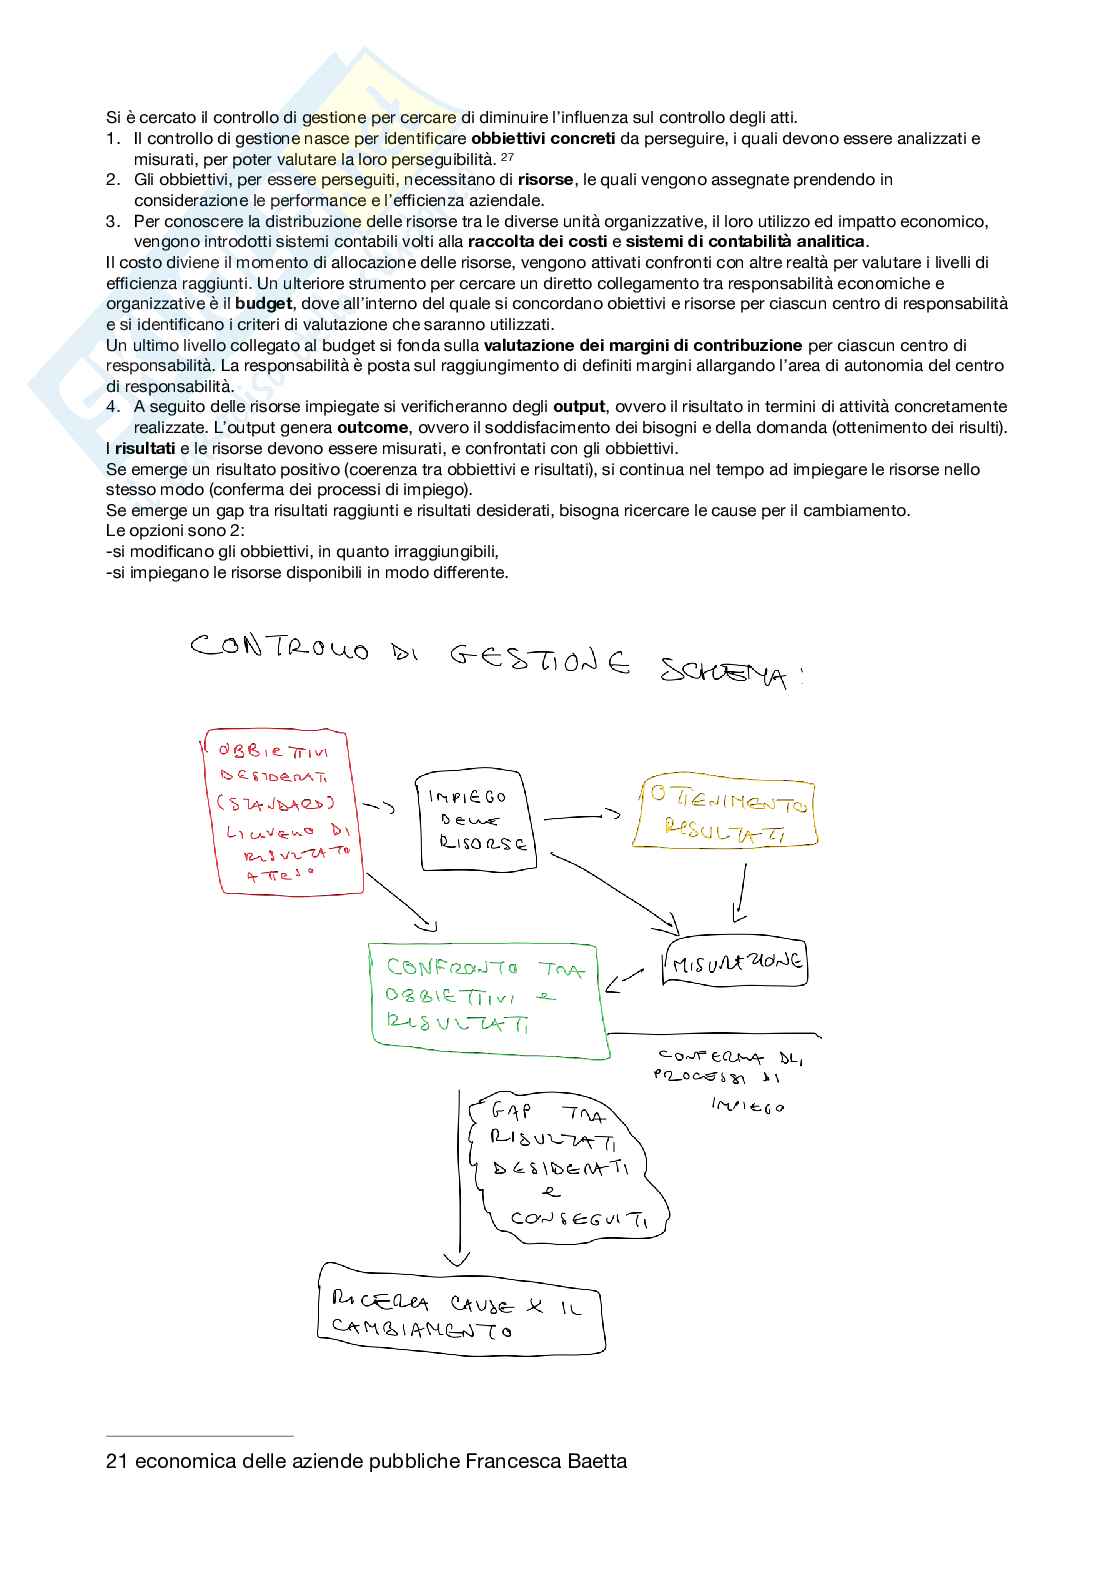 Si è cercato il controllo di gestione per cercare di diminuire l'influenza sul controllo degli atti.
1. Il controllo di gestione nasce per identificare obbiettivi concreti da perseguire, i quali devono essere analizzati e
misurati, per poter valutare la loro perseguibilità. 27
2. Gli obbiettivi, per essere perseguiti, necessitano di risorse, le quali vengono assegnate prendendo in
considerazione le performance e l'efficienza aziendale.
3. Per conoscere la distribuzione delle risorse tra le diverse unità organizzative, il loro utilizzo ed impatto economico,
vengono introdotti sistemi contabili volti alla raccolta dei costi e sistemi di contabilità analitica.
Il costo diviene il momento di allocazione delle risorse, vengono attivati confronti con altre realtà per valutare i livelli di
efficienza raggiunti. Un ulteriore strumento per cercare un diretto collegamento tra responsabilità economiche e
organizzative è il budget, dove all'interno del quale si concordano obiettivi e risorse per ciascun centro di responsabilità
e si identificano i criteri di valutazione che saranno utilizzati.
Un ultimo livello collegato al budget si fonda sulla valutazione dei margini di contribuzione per ciascun centro di
responsabilità. La responsabilità è posta sul raggiungimento di definiti margini allargando l'area di autonomia del centro
di responsabilità.
4. A seguito delle risorse impiegate si verificheranno degli output, ovvero il risultato in termini di attività concretamente
realizzate. L'output genera outcome, ovvero il soddisfacimento dei bisogni e della domanda (ottenimento dei risulti).
I risultati e le risorse devono essere misurati, e confrontati con gli obbiettivi.
Se emerge un risultato positivo (coerenza tra obbiettivi e risultati), si continua nel tempo ad impiegare le risorse nello
stesso modo (conferma dei processi di impiego).
Se emerge un gap tra risultati raggiunti e risultati desiderati, bisogna ricercare le cause per il cambiamento.
Le opzioni sono 2:
-si modificano gli obbiettivi, in quanto irraggiungibili,
-si impiegano le risorse disponibili in modo differente.
CONTROLLO DI GESTIONE SCHEMA:
OBBIETTIVI
DESIDERATI
(STANDARD)
LIVELLO DI
RISULTATO
ATTESO
IMPIEGO
DELLE
RISORSE
OTTENIMENTO
RISULTATI
MISURAZIONE
CONFRONTO TRA
OBBIETTIVI e
RISULTATI
CONFERMA DEI
PROCESSI DI
IMPIEGO
GAP TRA
RISULTATI
DESIDERATI
e
CONSEGUITI
RICERCA CAUSE X IL
CAMBIAMENTO
21 economica delle aziende pubbliche Francesca Baetta